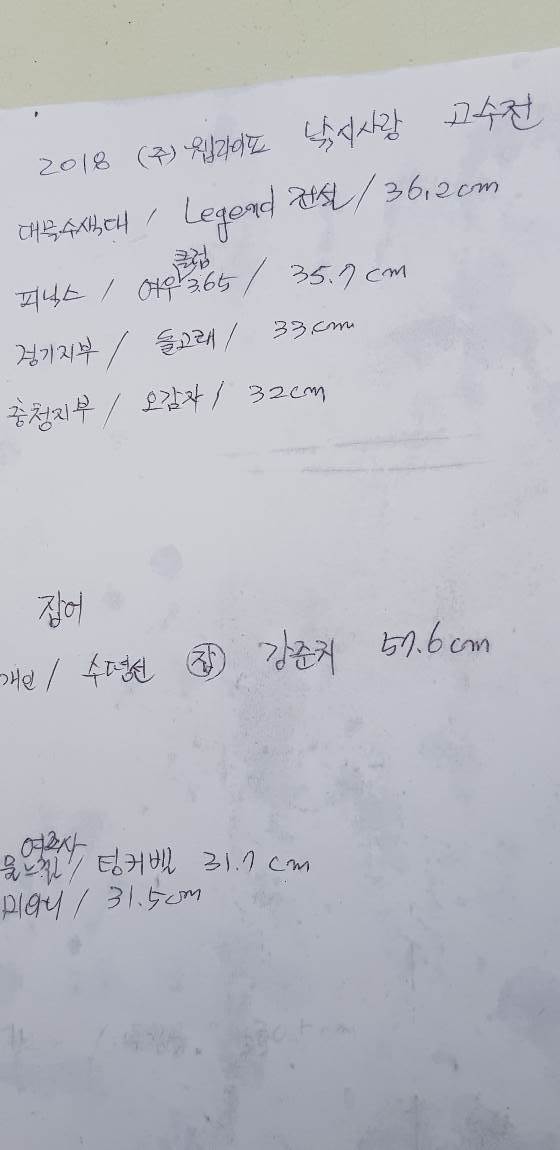 2018 (주) 웹라이프 낚시사랑 고수전
대물수색대 / Legend 전설 / 36.2cm
클럽
피닉스 / 여우365 / 35.7cm
경기지부 / 돌고래 / 33cm
충청지부 / 오감자 / 32cm
잡어
개인 / 수평선 잡 강준치 57.6cm
여조사
/ 팅커벨 31.7cm
/ 31.5cm